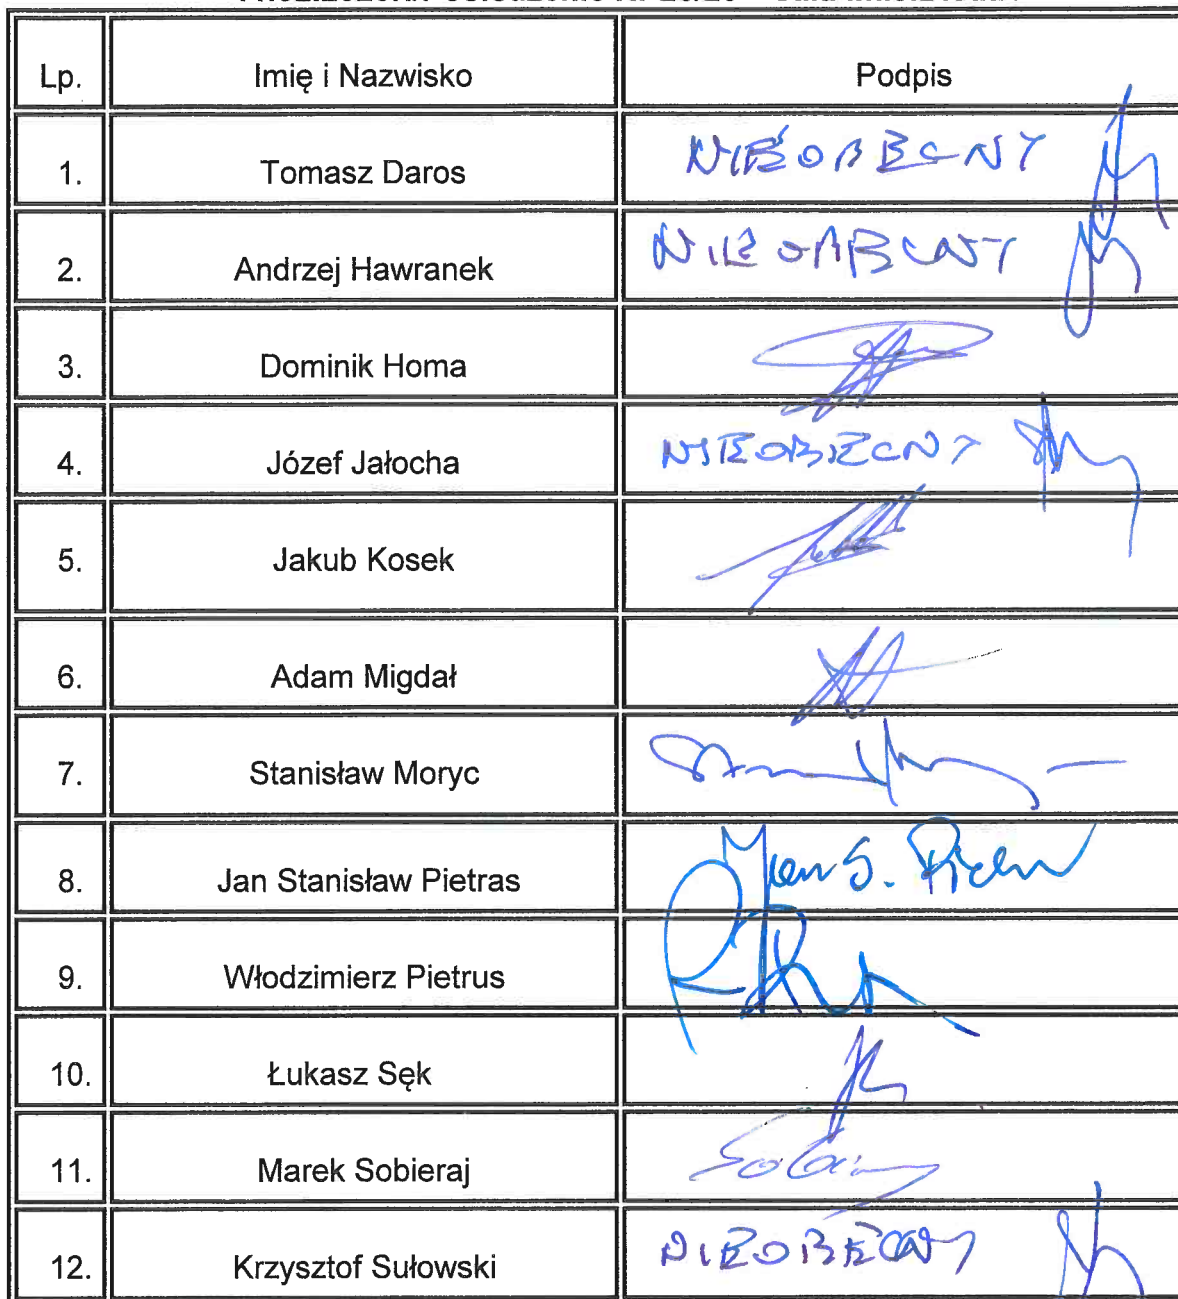 Lp. Imię i Nazwisko Podpis
1. Tomasz Daros NIEOBECNY
2. Andrzej Hawranek NIEOBECNY
3. Dominik Homa
4. Józef Jałocha NIEOBECNY
5. Jakub Kosek
6. Adam Migdał
7. Stanisław Moryc
8. Jan Stanisław Pietras Jan S.
9. Włodzimierz Pietrus
10. Łukasz Sęk
11. Marek Sobieraj
12. Krzysztof Sułowski NIEOBECNY